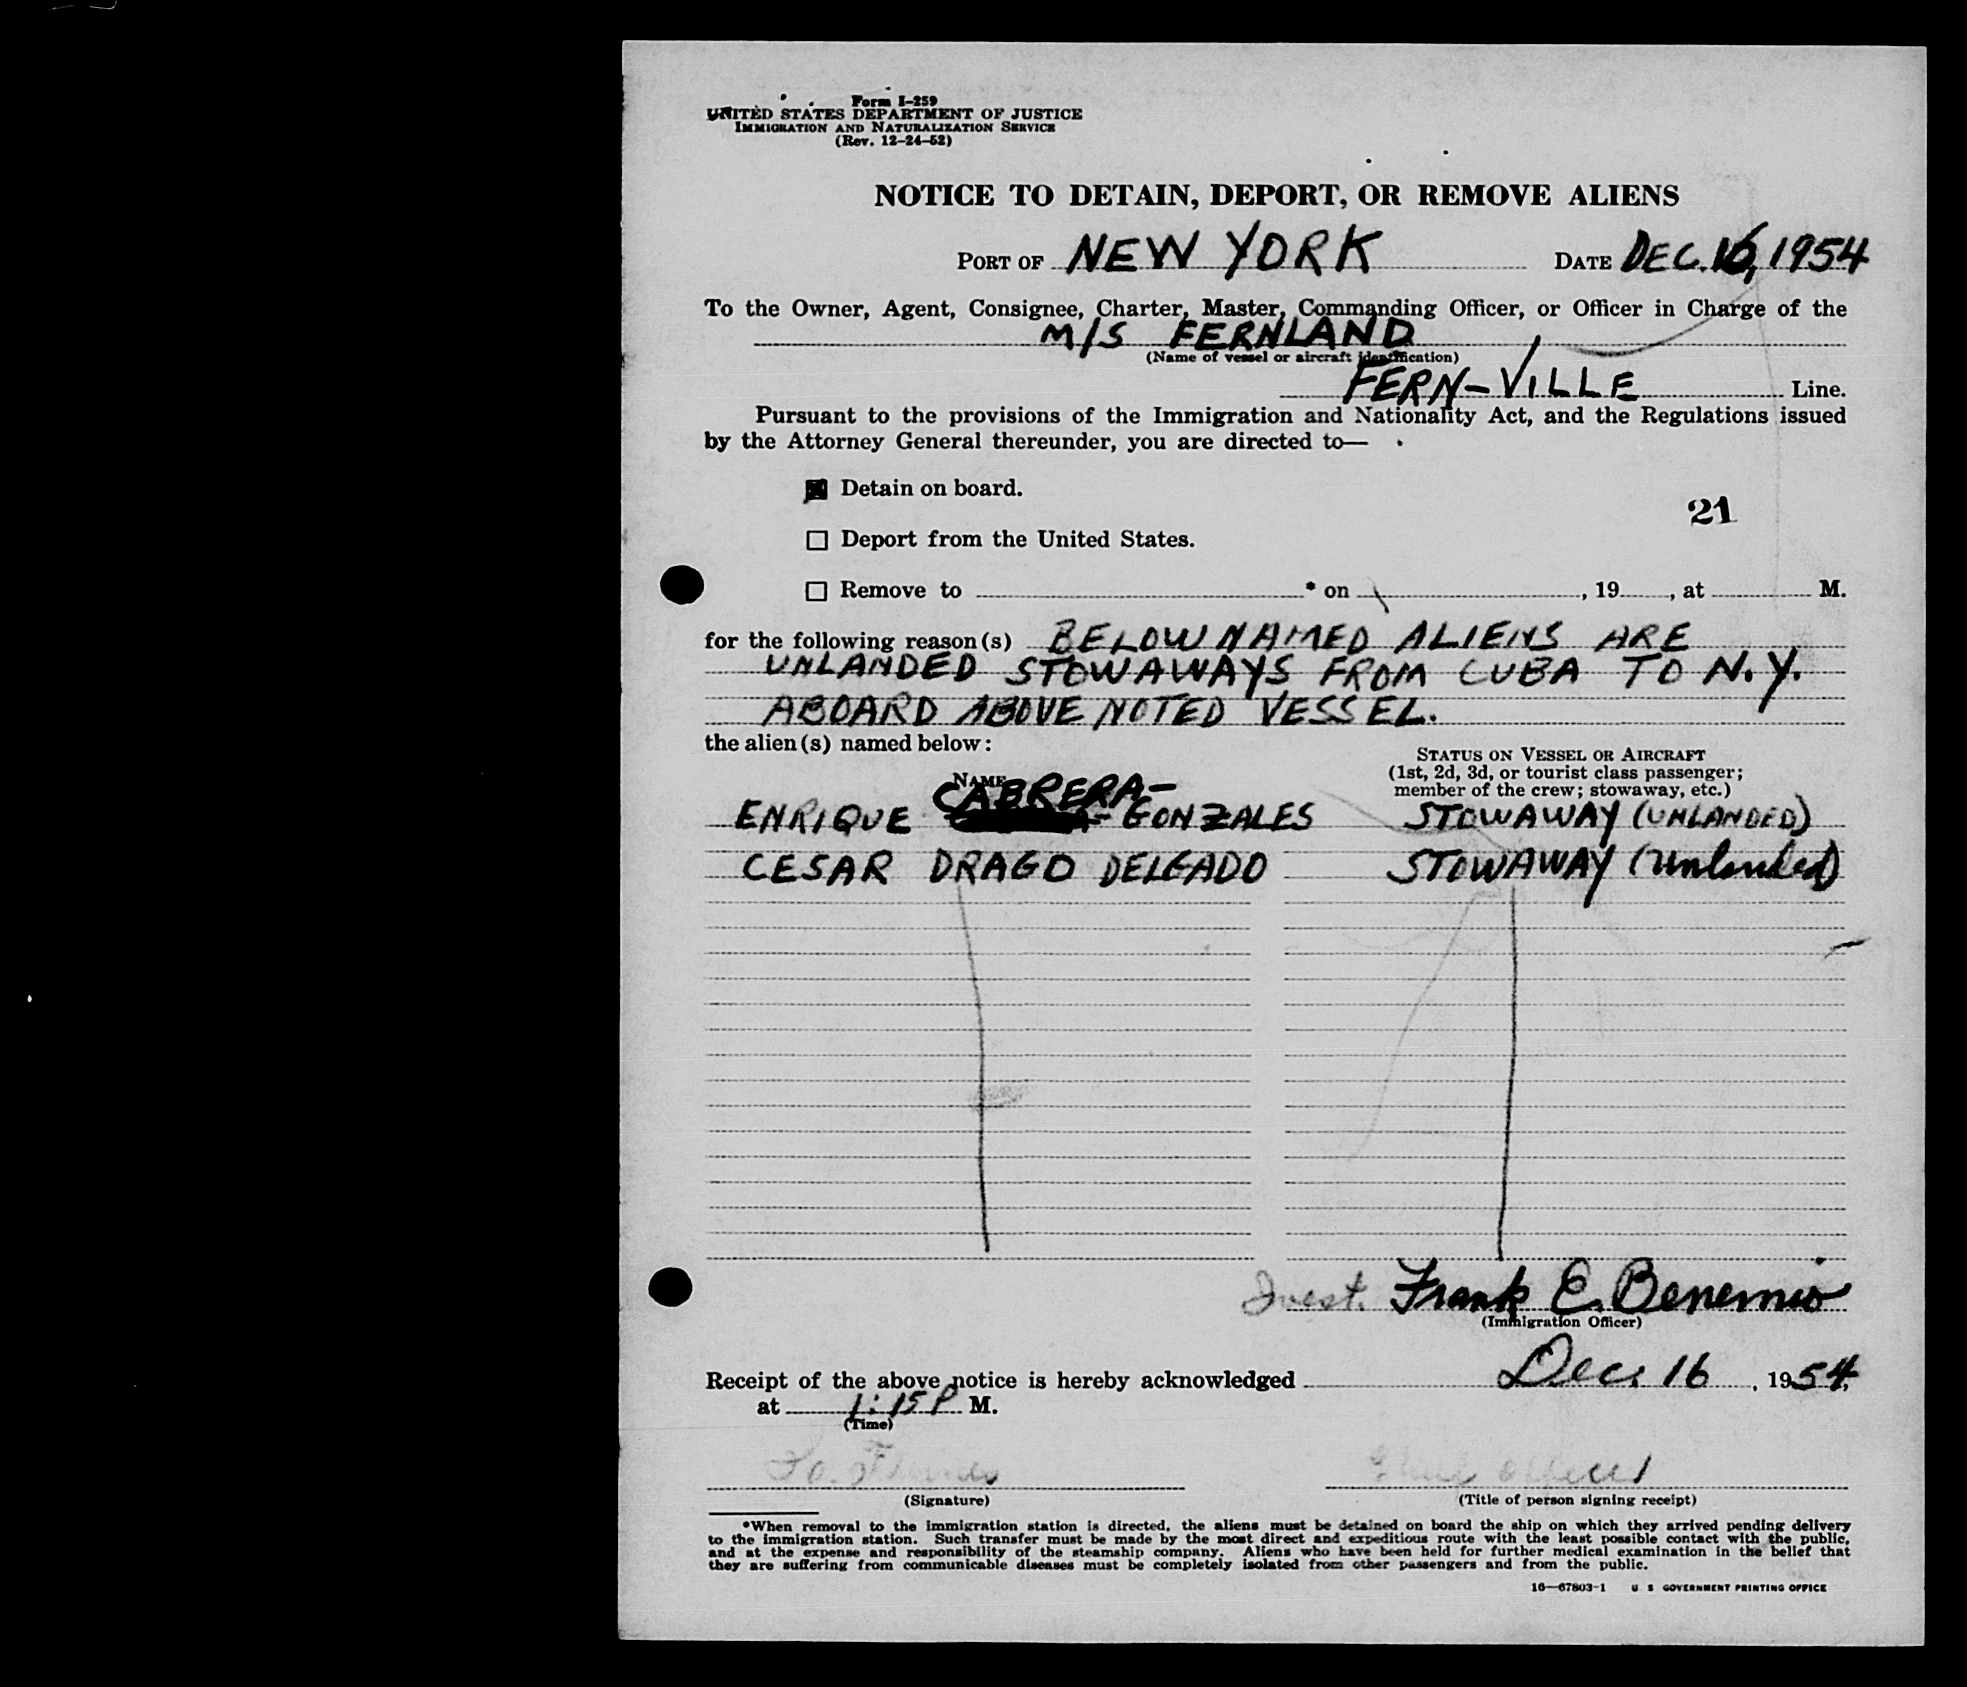 Form I-259
UNITED STATES DEPARTMENT OF JUSTICE
IMMIGRATION AND NATURALIZATION SERVICE
(Rev. 12-24-52)
NOTICE TO DETAIN, DEPORT, OR REMOVE ALIENS
PORT OF NEW YORK DATE DEC. 16, 1954
To the Owner, Agent, Consignee, Charter, Master, Commanding Officer, or Officer in Charge of the
M/S FERNLAND
(Name of vessel or aircraft identification)
FERN-VILLE Line.
Pursuant to the provisions of the Immigration and Nationality Act, and the Regulations issued
by the Attorney General thereunder, you are directed to—
Detain on board.
21
Deport from the United States.
Remove to * on , 19 , at M.
for the following reason(s) BELOW NAMED ALIENS ARE
UNLANDED STOWAWAYS FROM CUBA TO N.Y.
ABOARD ABOVE NOTED VESSEL.
the alien(s) named below:
NAME
STATUS ON VESSEL OR AIRCRAFT
(1st, 2d, 3d, or tourist class passenger;
member of the crew; stowaway, etc.)
CABRERA-
ENRIQUE GONZALES STOWAWAY (UNLANDED)
CESAR DRAGO DELGADO STOWAWAY (Unlanded)
Invest. Frank E. Benemio
(Immigration Officer)
Receipt of the above notice is hereby acknowledged Dec. 16, 1954,
at 1:15 P M.
(Time)
Chief Officer
(Signature) (Title of person signing receipt)
*When removal to the immigration station is directed, the aliens must be detained on board the ship on which they arrived pending delivery
to the immigration station. Such transfer must be made by the most direct and expeditious route with the least possible contact with the public,
and at the expense and responsibility of the steamship company. Aliens who have been held for further medical examination in the belief that
they are suffering from communicable diseases must be completely isolated from other passengers and from the public.
16—67803-1 U S GOVERNMENT PRINTING OFFICE